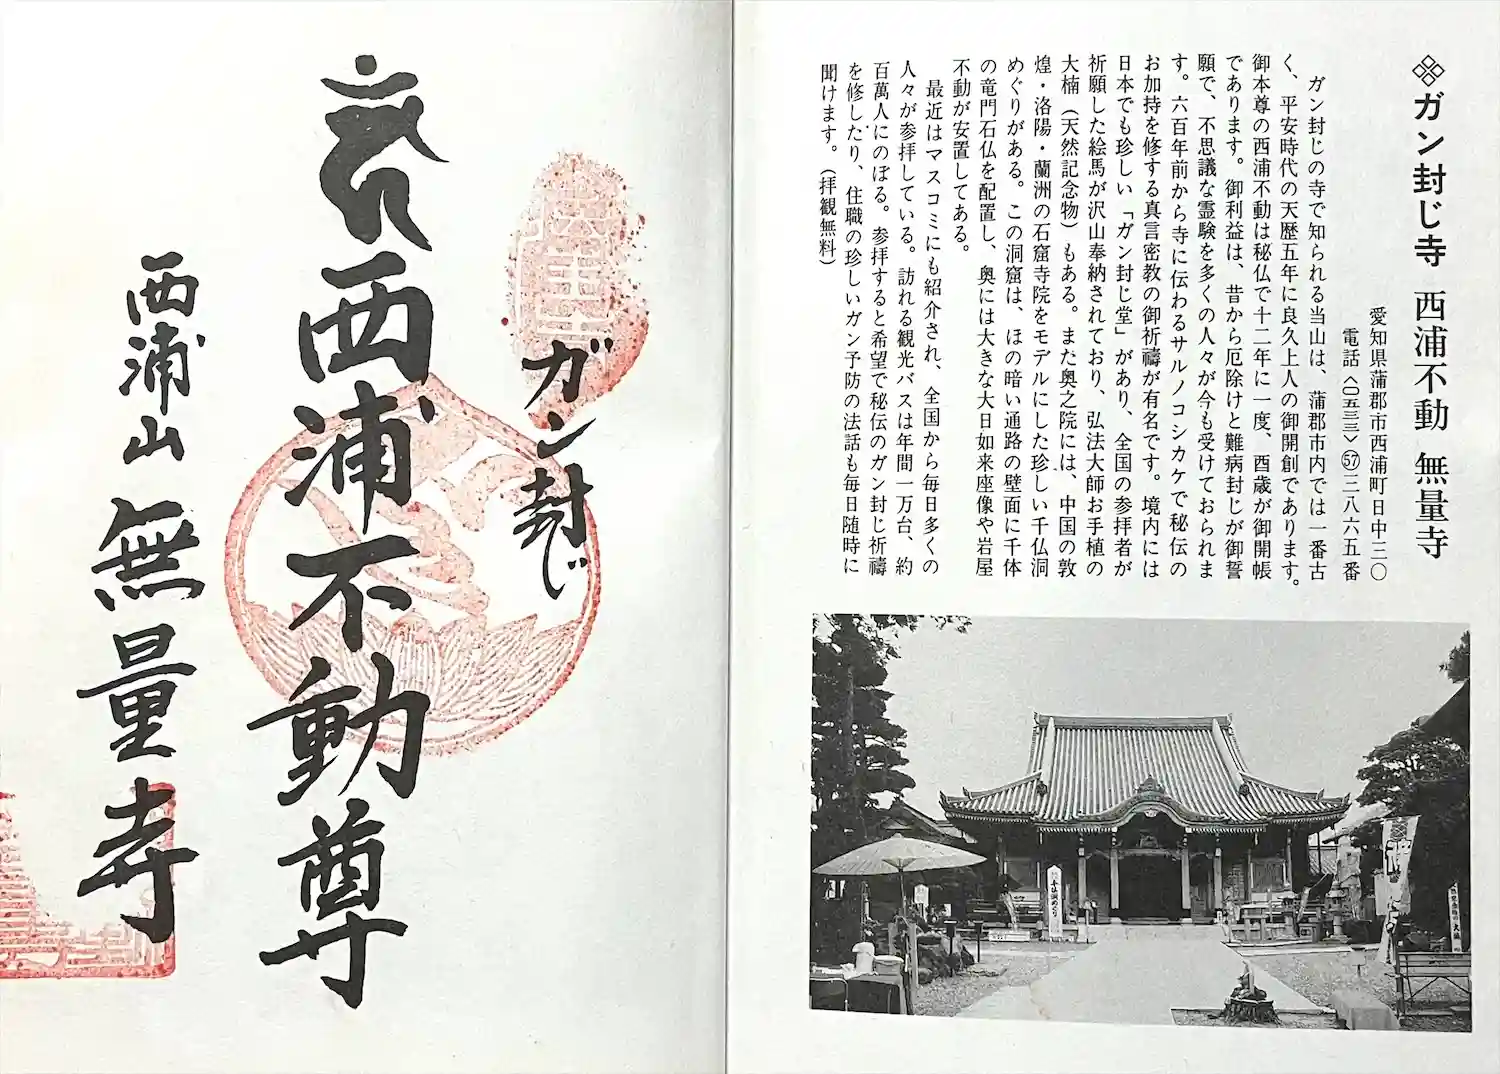 ❖ガン封じ寺 西浦不動 無量寺
愛知県蒲郡市西浦町日中三〇
電話〈〇五三三〉57三八六五番
ガン封じの寺で知られる当山は、蒲郡市内では一番古
く、平安時代の天歴五年に良久上人の御開創であります。
御本尊の西浦不動は秘仏で十二年に一度、酉歳が御開帳
であります。御利益は、昔から厄除けと難病封じが御誓
願で、不思議な霊験を多くの人々が今も受けておられま
す。六百年前から寺に伝わるサルノコシカケで秘伝の
お加持を修する真言密教の御祈禱が有名です。境内には
日本でも珍しい「ガン封じ堂」があり、全国の参拝者が
祈願した絵馬が沢山奉納されており、弘法大師お手植の
大楠（天然記念物）もある。また奥之院には、中国の敦
煌・洛陽・蘭洲の石窟寺院をモデルにした珍しい千仏洞
めぐりがある。この洞窟は、ほの暗い通路の壁面に千体
の竜門石仏を配置し、奥には大きな大日如来座像や岩屋
不動が安置してある。
最近はマスコミにも紹介され、全国から毎日多くの
人々が参拝している。訪れる観光バスは年間一万台、約
百萬人にのぼる。参拝すると希望で秘伝のガン封じ祈禱
を修したり、住職の珍しいガン予防の法話も毎日随時に
聞けます。（拝観無料）
千仏洞めぐり
ガン封じ
西浦不動尊
西浦山 無量寺